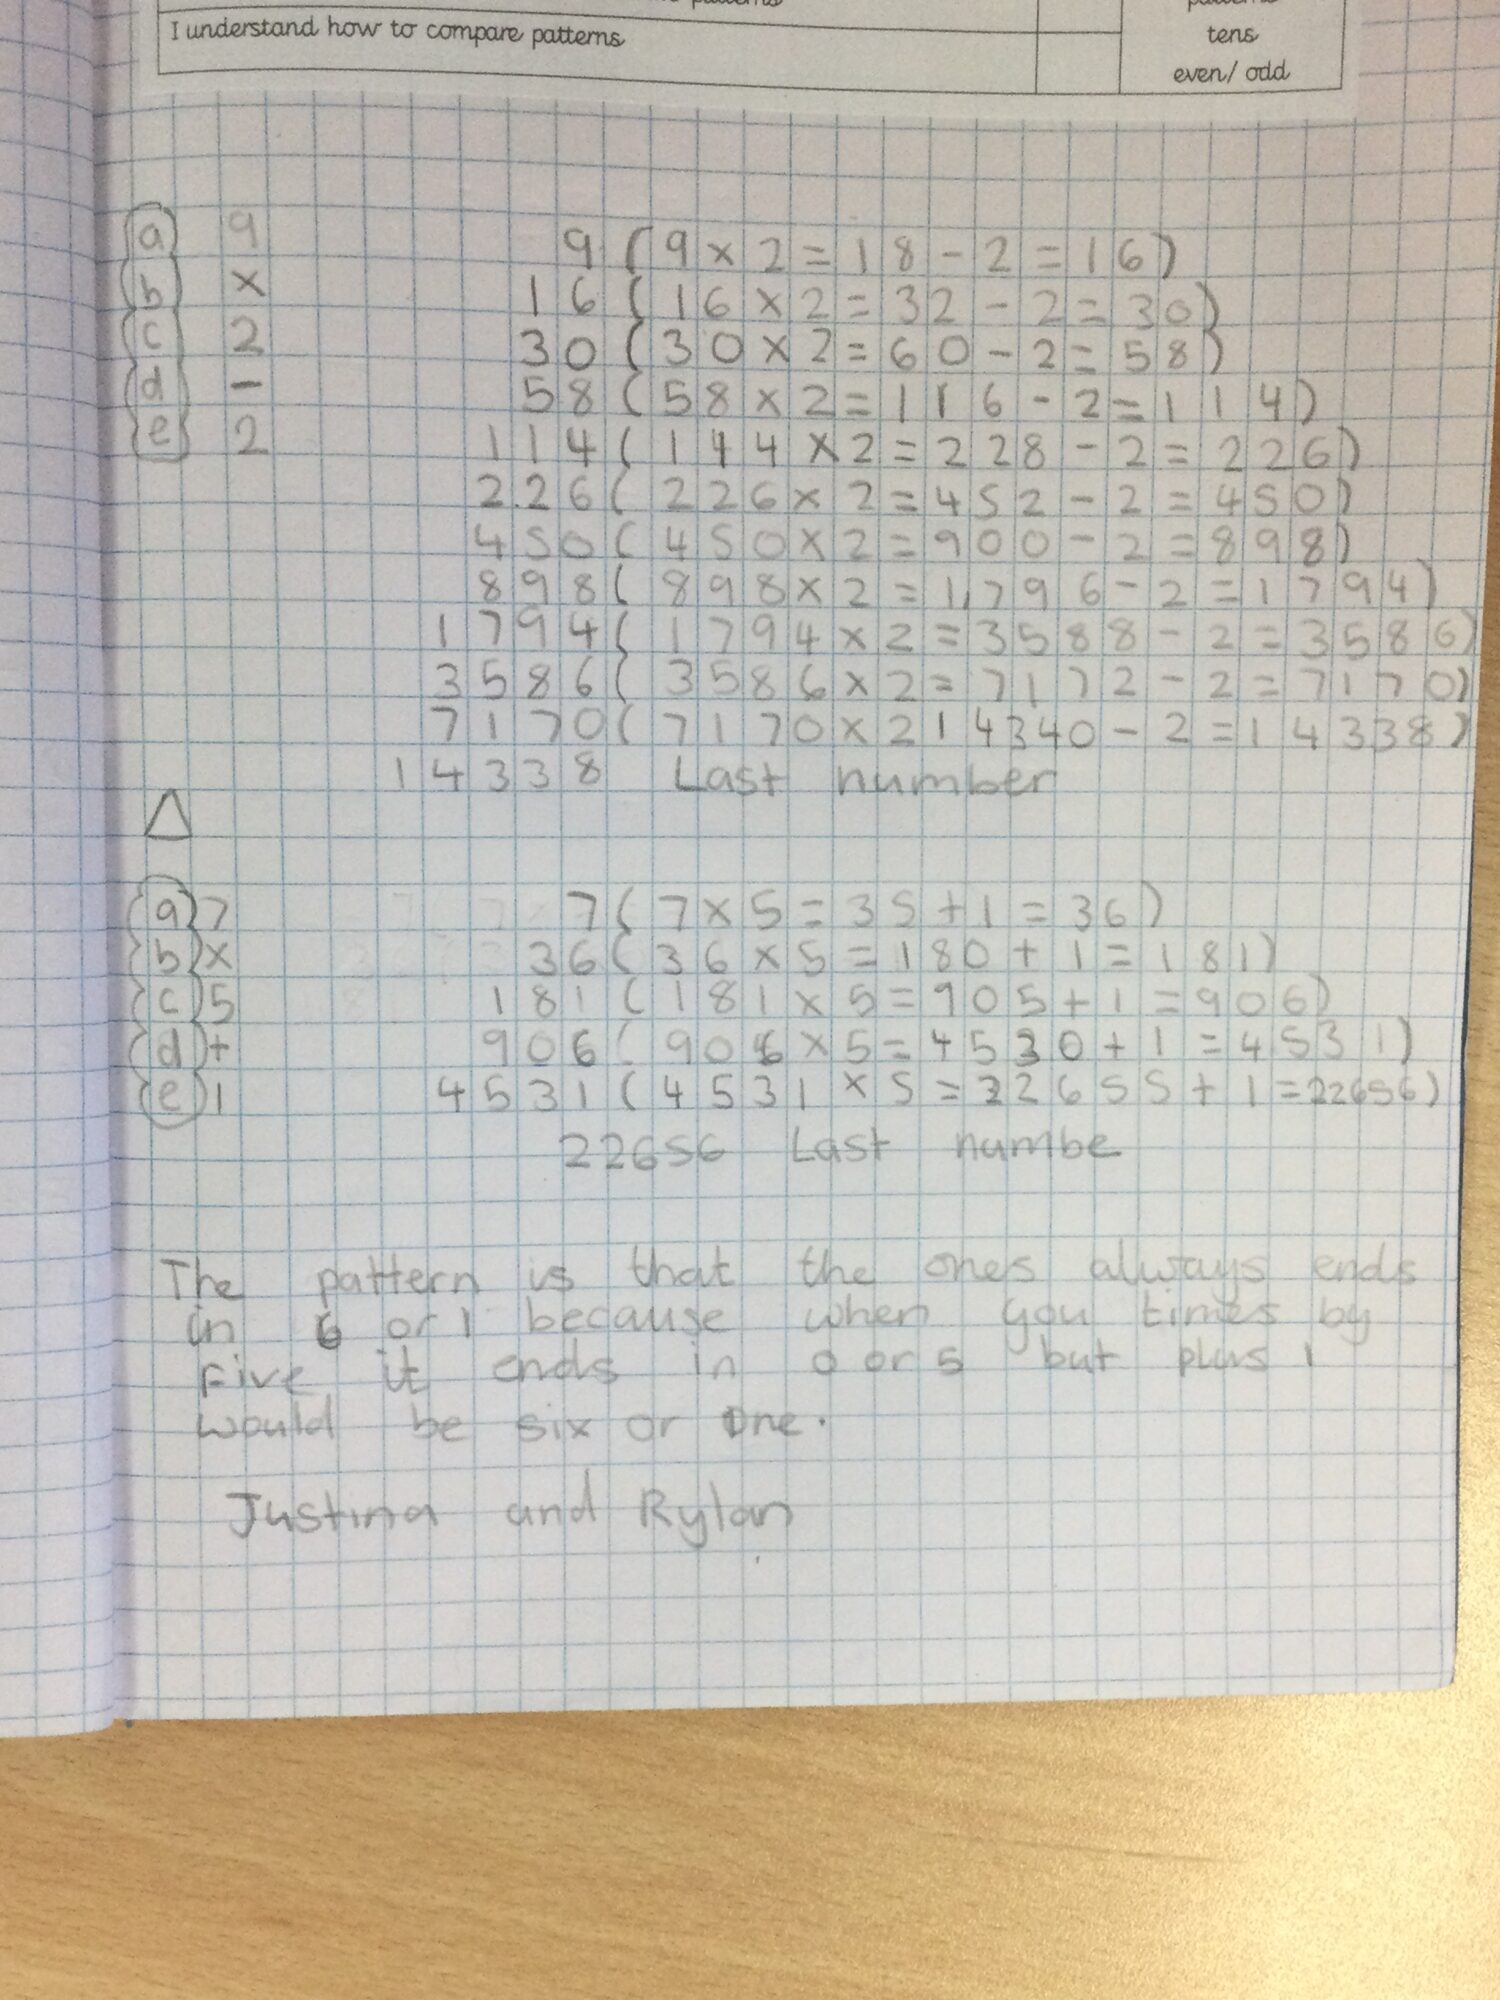 patterns
I understand how to compare patterns
tens
even/ odd
a 9
b ×
c 2
d -
e 2
9 (9×2=18-2=16)
16 (16×2=32-2=30)
30 (30×2=60-2=58)
58 (58×2=116-2=114)
114 (144×2=228-2=226)
226 (226×2=452-2=450)
450 (450×2=900-2=898)
898 (898×2=1,796-2=1794)
1794 (1794×2=3588-2=3586)
3586 (3586×2=7172-2=7170)
7170 (7170×214340-2=14338)
14338 Last number
a) 7
b) ×
c) 5
d) +
e) 1
7 (7×5=35+1=36)
36 (36×5=180+1=181)
181 (181×5=905+1=906)
906 (906×5=4530+1=4531)
4531 (4531×5=22655+1=22656)
22656 Last numbe
The pattern is that the ones always ends
in 6 or 1 because when you times by
five it ends in 0 or 5 but plus 1
would be six or one.
Justina and Rylan